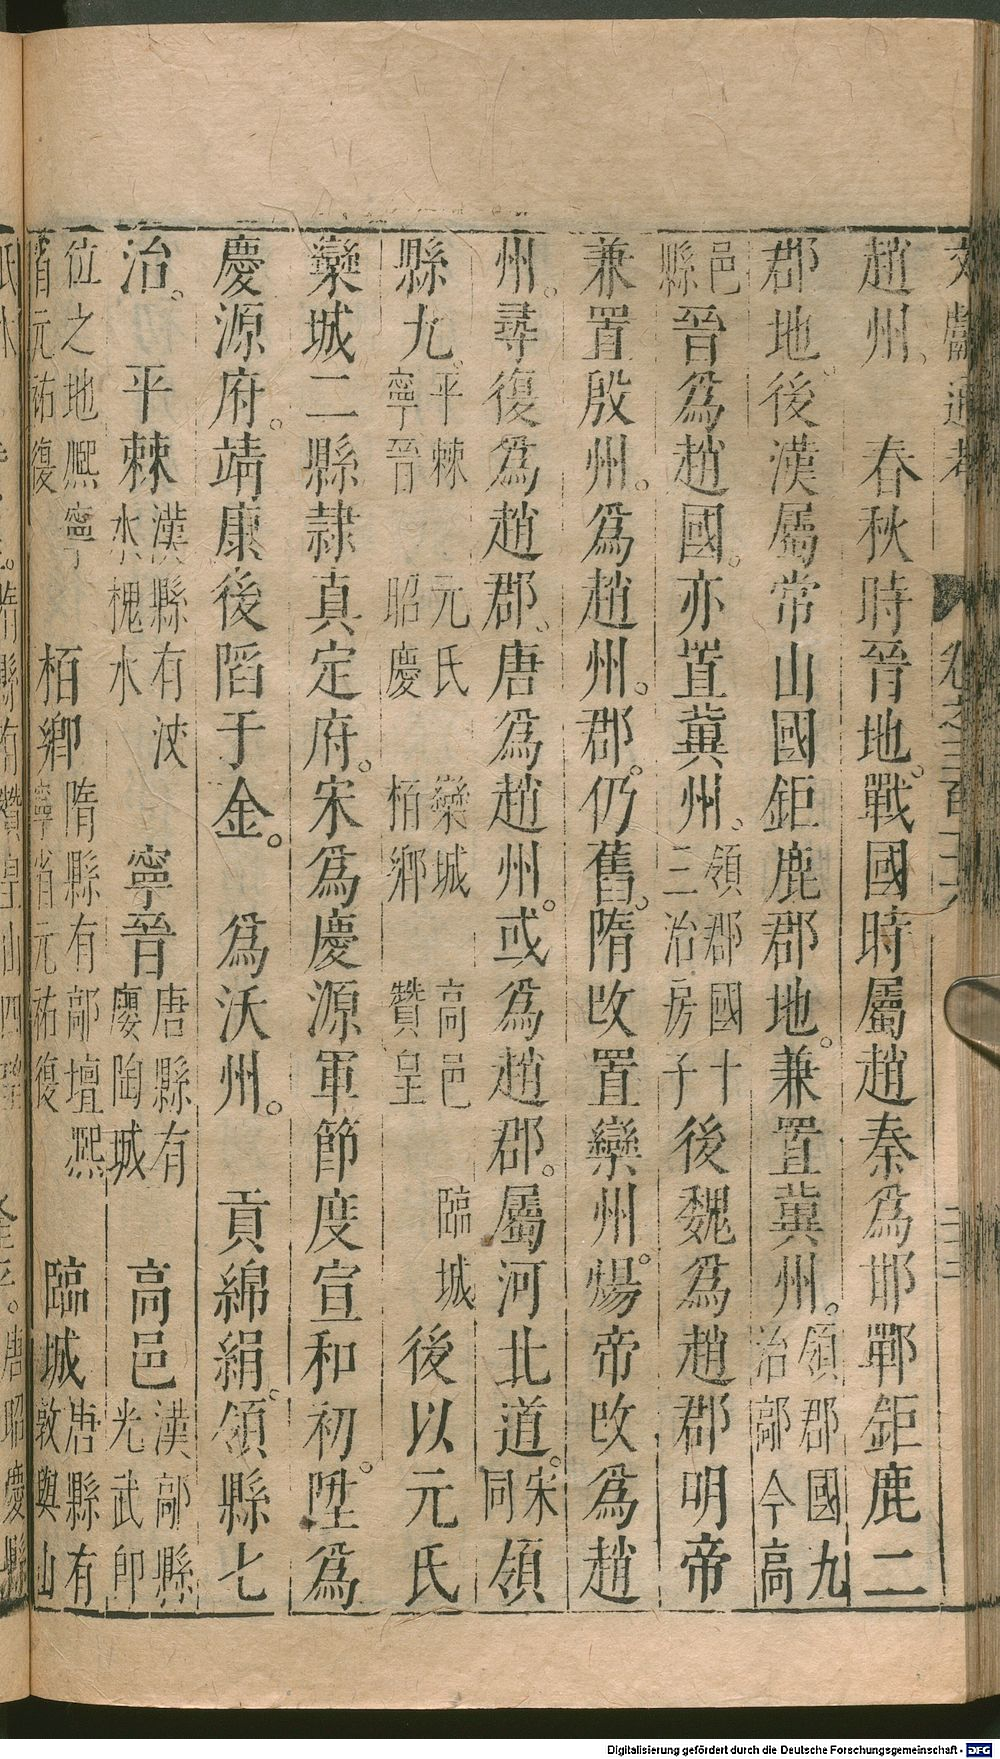 趙州。　春秋時晉地。戰國時屬趙秦爲邯鄲鉅鹿二
郡地。後漢屬常山國鉅鹿郡地。兼置冀州。領郡國九治鄗今高
邑縣晉爲趙國。亦置冀州。領郡國十三治房子後魏爲趙郡明帝
兼置殷州。爲趙州。郡。仍舊。隋改置欒州。煬帝改爲趙
州。尋復爲趙郡。唐爲趙州。或爲趙郡。屬河北道。宋同領
縣九。平棘 元氏 欒城 高邑 臨城 寧晉 昭慶 栢鄉 贊皇 後以元氏
欒城二縣隷真定府。宋爲慶源軍節度宣和初。陞爲
慶源府。靖康後䧟于金。　爲沃州。　貢綿絹。領縣七
治。　平棘漢縣有洨水槐水　寧晉唐縣有廮陶城　高邑漢鄗縣光武卽
位之地熈寧省元祐復　栢鄉隋縣有鄗壇熈寧省元祐復　臨城唐縣有敦輿山
Digitalisierung gefördert durch die Deutsche Forschungsgemeinschaft - DFG